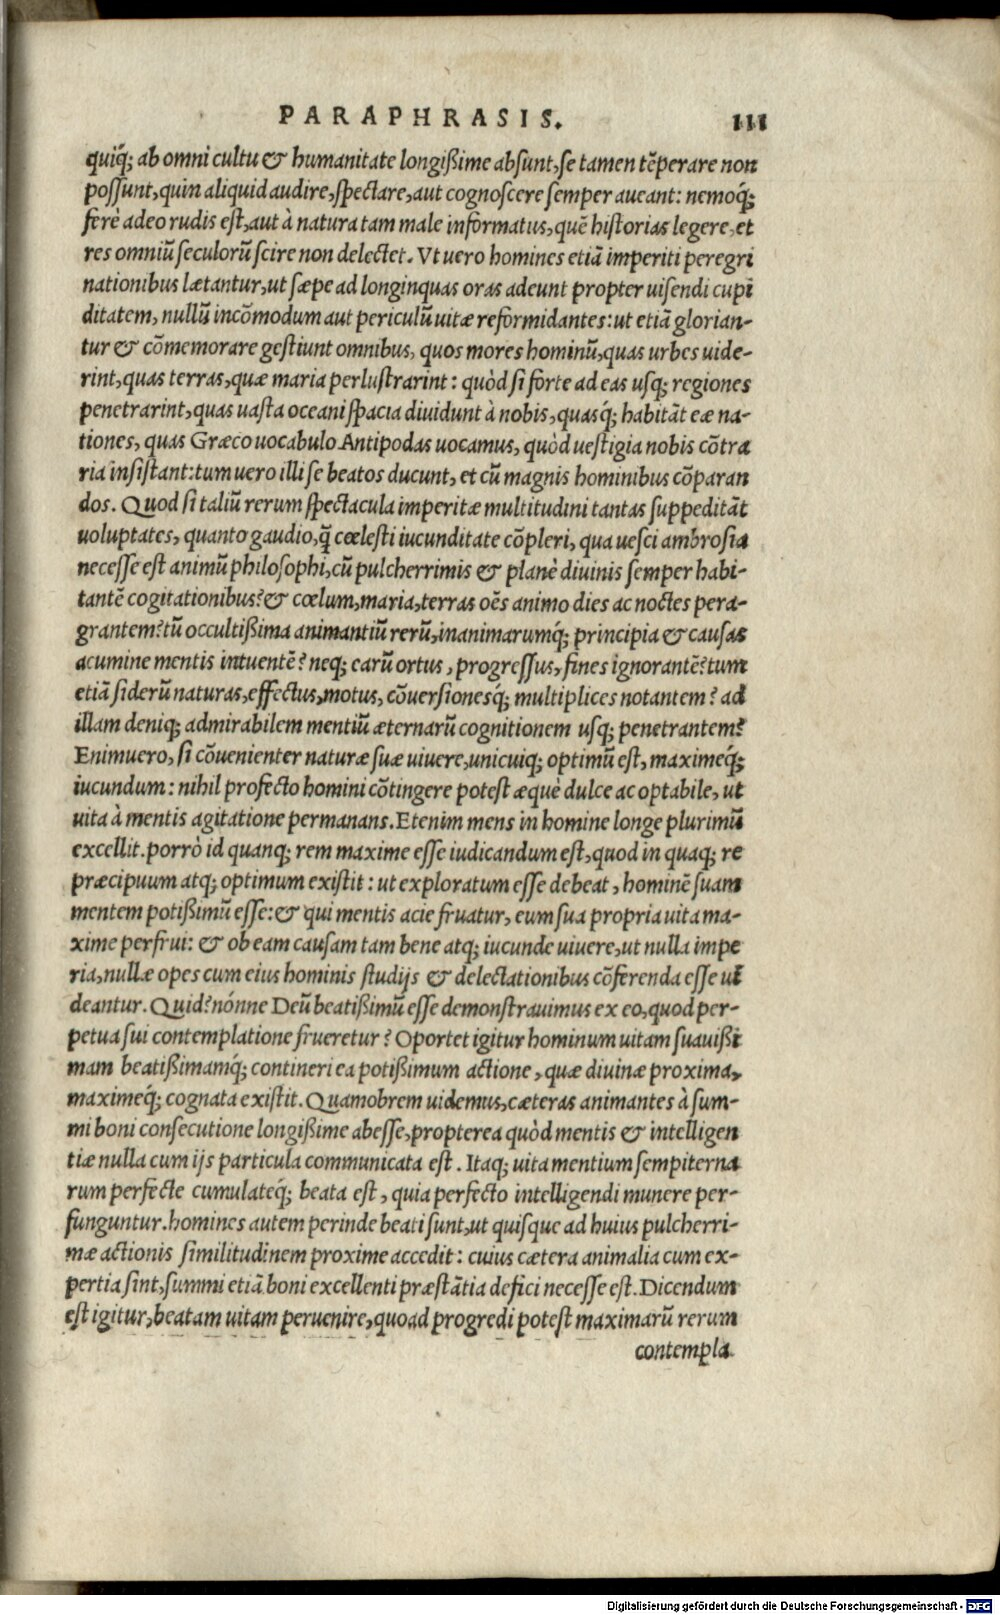 PARAPHRASIS. 111
quiq́; ab omni cultu & humanitate longißime absunt, se tamen tẽperare non
possunt, quin aliquid audire, spectare, aut cognoscere semper aueant: nemoq́;
ferè adeo rudis est, aut à natura tam male informatus, quẽ historias legere, et
res omniũ seculorũ scire non delectet. Vt uero homines etiã imperiti peregri
nationibus lætantur, ut sæpe ad longinquas oras adeunt propter uisendi cupi
ditatem, nullũ incõmodum aut periculũ uitæ reformidantes: ut etiã glorian-
tur & cõmemorare gestiunt omnibus, quos mores hominũ, quas urbes uide-
rint, quas terras, quæ maria perlustrarint: quòd si forte ad eas usq; regiones
penetrarint, quas uasta oceani spacia diuidunt à nobis, quasq́; habitãt eæ na-
tiones, quas Græco uocabulo Antipodas uocamus, quòd uestigia nobis cõtra
ria insistant: tum uero illi se beatos ducunt, et cũ magnis hominibus cõparan
dos. Quod si taliũ rerum spectacula imperitæ multitudini tantas suppeditãt
uoluptates, quanto gaudio, q̃ cœlesti iucunditate cõpleri, qua uesci ambrosia
necesse est animũ philosophi, cũ pulcherrimis & planè diuinis semper habi-
tantẽ cogitationibus? & cœlum, maria, terras oẽs animo dies ac noctes pera-
grantem? tũ occultißima animantiũ rerũ, inanimarumq́; principia & causas
acumine mentis intuentẽ? neq; earũ ortus, progressus, fines ignorantẽ? tum
etiã siderũ naturas, effectus, motus, cõuersionesq́; multiplices notantem? ad
illam deniq; admirabilem mentiũ æternarũ cognitionem usq; penetrantem?
Enimuero, si cõuenienter naturæ suæ uiuere, unicuiq; optimũ est, maximeq́;
iucundum: nihil profecto homini cõtingere potest æquè dulce ac optabile, ut
uita à mentis agitatione permanans. Etenim mens in homine longe plurimũ
excellit. porrò id quanq; rem maxime esse iudicandum est, quod in quaq; re
præcipuum atq; optimum existit: ut exploratum esse debeat, hominẽ suam
mentem potißimũ esse: & qui mentis acie fruatur, eum sua propria uita ma-
xime perfrui: & ob eam causam tam bene atq; iucunde uiuere, ut nulla impe
ria, nullæ opes cum eius hominis studijs & delectationibus cõferenda esse ui
deantur. Quid? nónne Deũ beatißimũ esse demonstrauimus ex eo, quod per-
petua sui contemplatione frueretur? Oportet igitur hominum uitam suauißi
mam beatißimamq́; contineri ea potißimum actione, quæ diuinæ proxima,
maximeq́; cognata existit. Quamobrem uidemus, cæteras animantes à sum-
mi boni consecutione longißime abesse, propterea quòd mentis & intelligen
tiæ nulla cum ijs particula communicata est. Itaq; uita mentium sempiterna
rum perfecte cumulateq́; beata est, quia perfecto intelligendi munere per-
funguntur. homines autem perinde beati sunt, ut quisque ad huius pulcherri-
mæ actionis similitudinem proxime accedit: cuius cætera animalia cum ex-
pertia sint, summi etiã boni excellenti præstãtia defici necesse est. Dicendum
est igitur, beatam uitam peruenire, quoad progredi potest maximarũ rerum
contempla
Digitalisierung gefördert durch die Deutsche Forschungsgemeinschaft - DFG